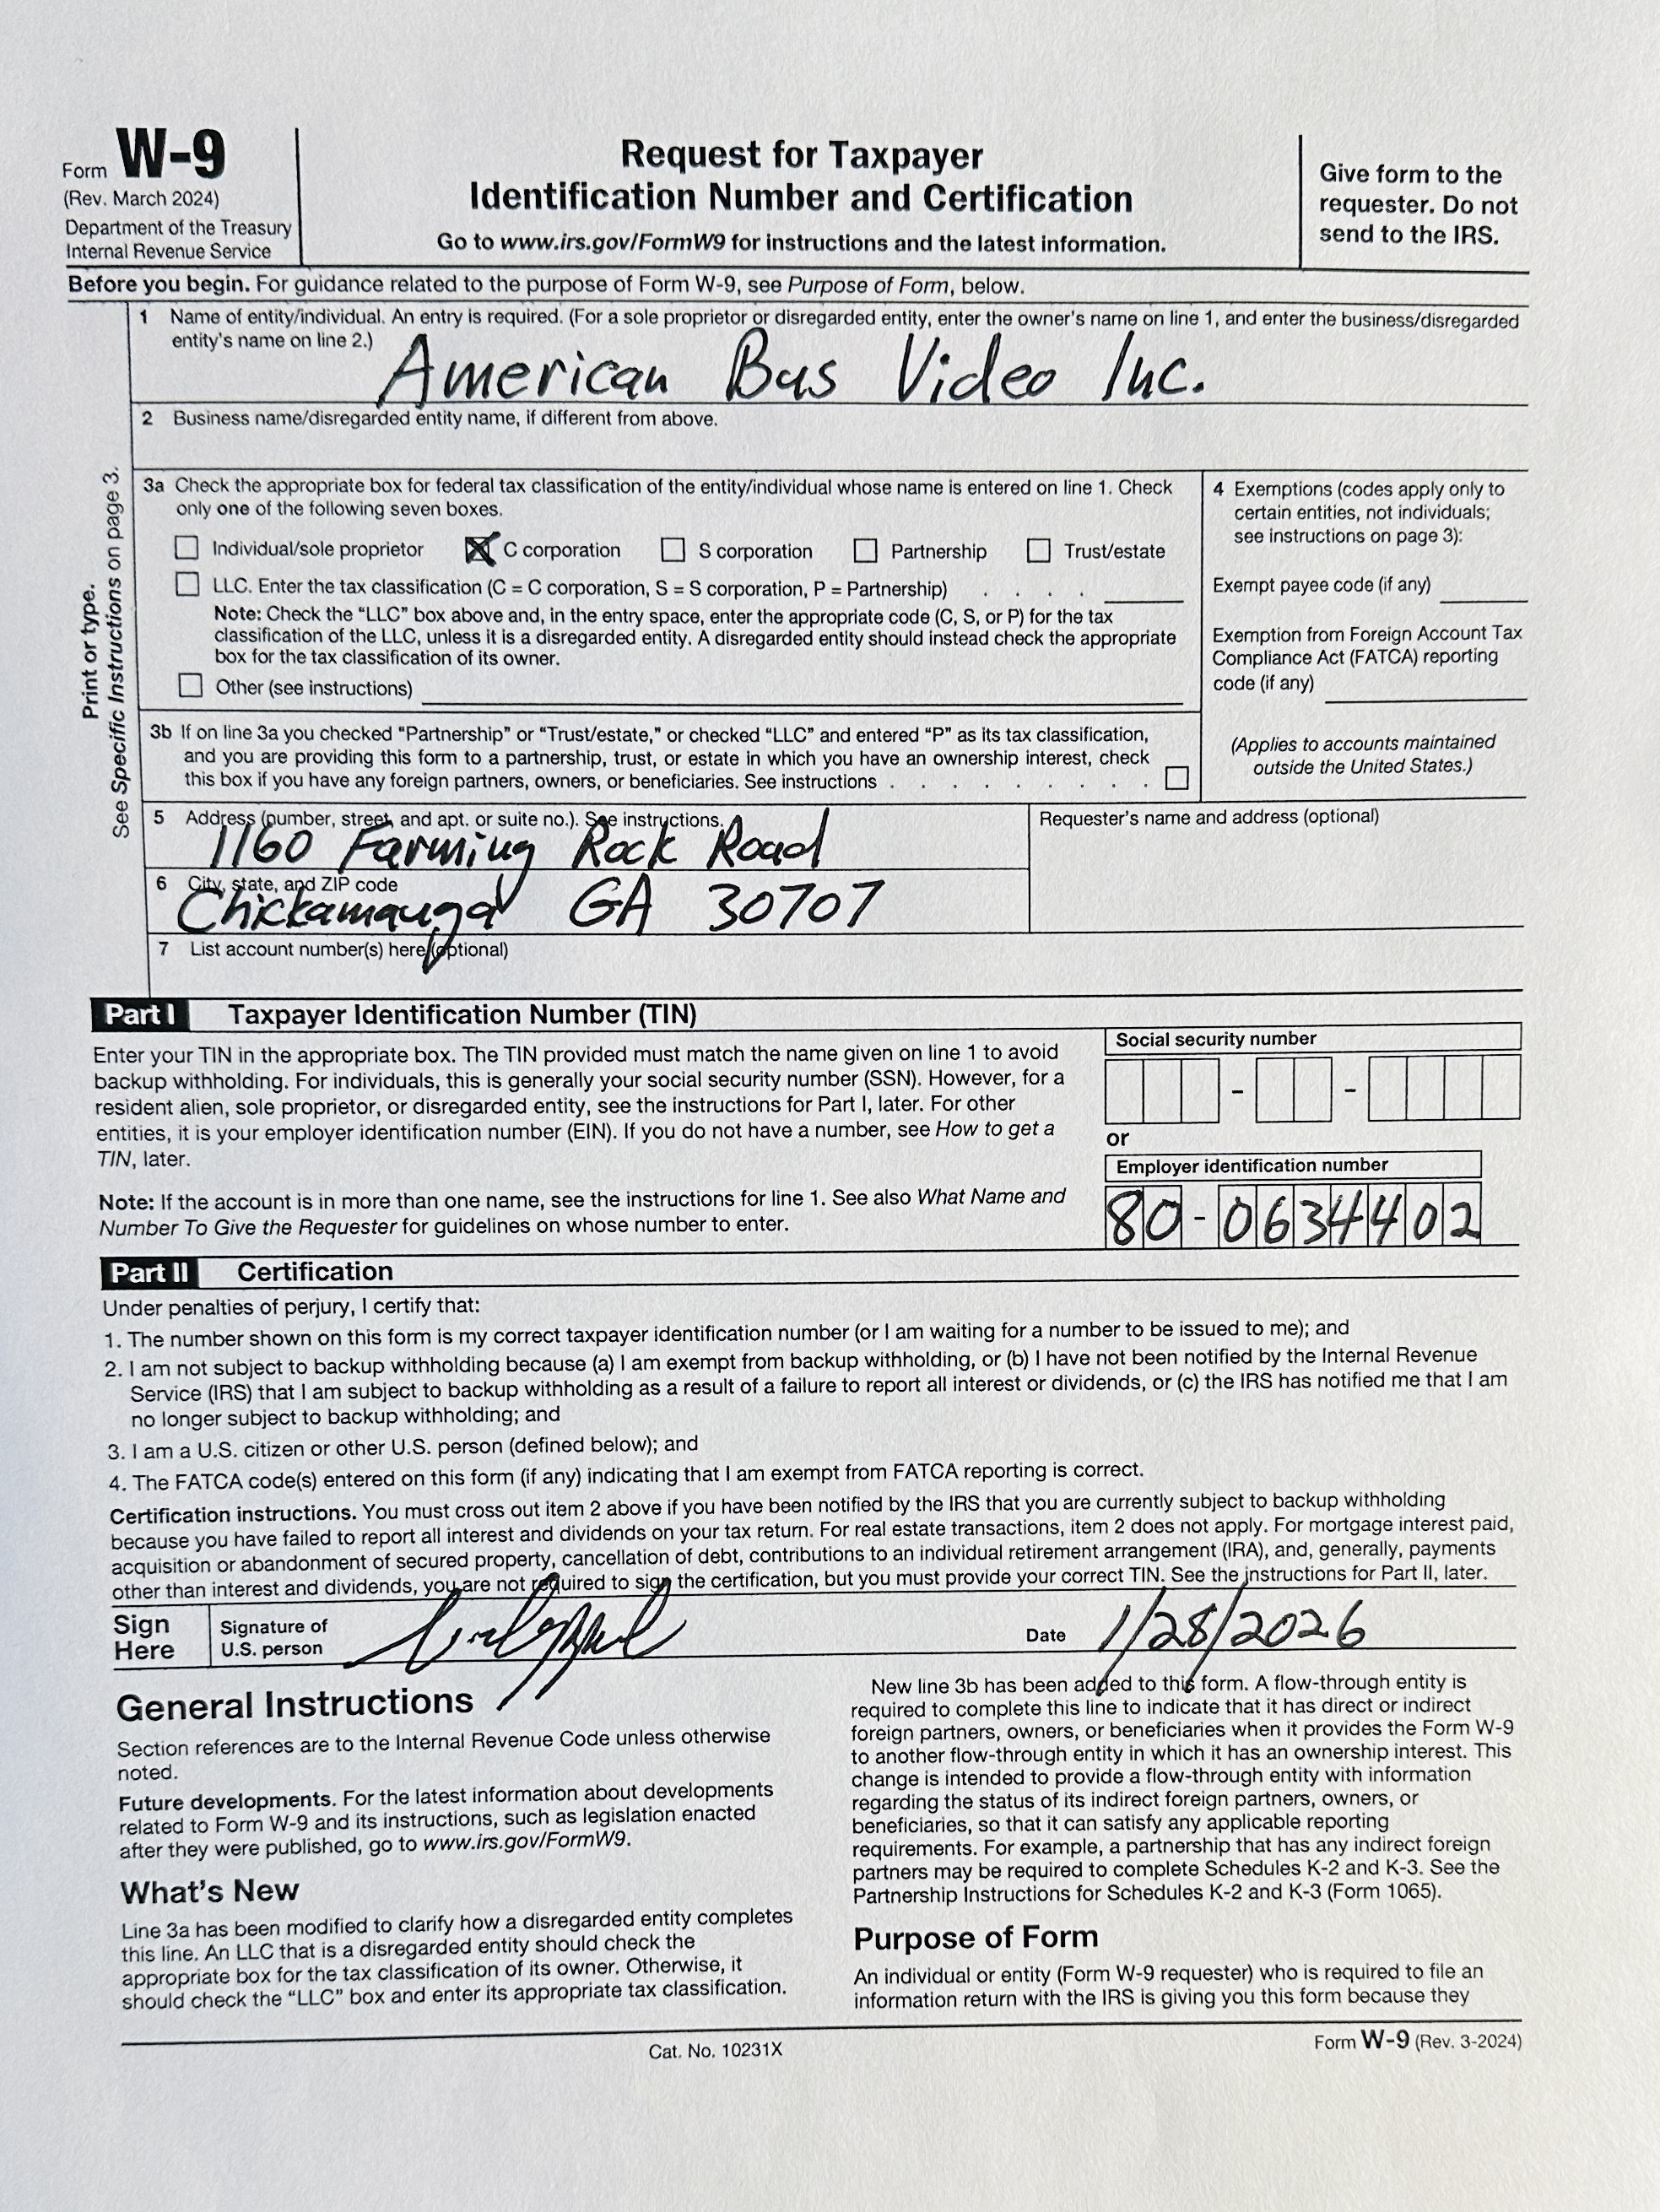 Form W-9
(Rev. March 2024)
Department of the Treasury
Internal Revenue Service
Request for Taxpayer
Identification Number and Certification
Go to www.irs.gov/FormW9 for instructions and the latest information.
Give form to the
requester. Do not
send to the IRS.
Before you begin. For guidance related to the purpose of Form W-9, see Purpose of Form, below.
Print or type.
See Specific Instructions on page 3.
1 Name of entity/individual. An entry is required. (For a sole proprietor or disregarded entity, enter the owner's name on line 1, and enter the business/disregarded
entity's name on line 2.)
American Bus Video Inc.
2 Business name/disregarded entity name, if different from above.
3a Check the appropriate box for federal tax classification of the entity/individual whose name is entered on line 1. Check
only one of the following seven boxes.
Individual/sole proprietor C corporation S corporation Partnership Trust/estate
LLC. Enter the tax classification (C = C corporation, S = S corporation, P = Partnership) . . . .
Note: Check the “LLC” box above and, in the entry space, enter the appropriate code (C, S, or P) for the tax
classification of the LLC, unless it is a disregarded entity. A disregarded entity should instead check the appropriate
box for the tax classification of its owner.
Other (see instructions)
4 Exemptions (codes apply only to
certain entities, not individuals;
see instructions on page 3):
Exempt payee code (if any)
Exemption from Foreign Account Tax
Compliance Act (FATCA) reporting
code (if any)
3b If on line 3a you checked “Partnership” or “Trust/estate,” or checked “LLC” and entered “P” as its tax classification,
and you are providing this form to a partnership, trust, or estate in which you have an ownership interest, check
this box if you have any foreign partners, owners, or beneficiaries. See instructions . . . . . . . . .
(Applies to accounts maintained
outside the United States.)
5 Address (number, street, and apt. or suite no.). See instructions.
1160 Farming Rock Road
Requester's name and address (optional)
6 City, state, and ZIP code
Chickamauga GA 30707
7 List account number(s) here (optional)
Part I Taxpayer Identification Number (TIN)
Enter your TIN in the appropriate box. The TIN provided must match the name given on line 1 to avoid
backup withholding. For individuals, this is generally your social security number (SSN). However, for a
resident alien, sole proprietor, or disregarded entity, see the instructions for Part I, later. For other
entities, it is your employer identification number (EIN). If you do not have a number, see How to get a
TIN, later.
Note: If the account is in more than one name, see the instructions for line 1. See also What Name and
Number To Give the Requester for guidelines on whose number to enter.
Social security number
- -
or
Employer identification number
80-0634402
Part II Certification
Under penalties of perjury, I certify that:
1. The number shown on this form is my correct taxpayer identification number (or I am waiting for a number to be issued to me); and
2. I am not subject to backup withholding because (a) I am exempt from backup withholding, or (b) I have not been notified by the Internal Revenue
Service (IRS) that I am subject to backup withholding as a result of a failure to report all interest or dividends, or (c) the IRS has notified me that I am
no longer subject to backup withholding; and
3. I am a U.S. citizen or other U.S. person (defined below); and
4. The FATCA code(s) entered on this form (if any) indicating that I am exempt from FATCA reporting is correct.
Certification instructions. You must cross out item 2 above if you have been notified by the IRS that you are currently subject to backup withholding
because you have failed to report all interest and dividends on your tax return. For real estate transactions, item 2 does not apply. For mortgage interest paid,
acquisition or abandonment of secured property, cancellation of debt, contributions to an individual retirement arrangement (IRA), and, generally, payments
other than interest and dividends, you are not required to sign the certification, but you must provide your correct TIN. See the instructions for Part II, later.
Sign
Here
Signature of
U.S. person
Date 1/28/2026
General Instructions
Section references are to the Internal Revenue Code unless otherwise
noted.
Future developments. For the latest information about developments
related to Form W-9 and its instructions, such as legislation enacted
after they were published, go to www.irs.gov/FormW9.
What's New
Line 3a has been modified to clarify how a disregarded entity completes
this line. An LLC that is a disregarded entity should check the
appropriate box for the tax classification of its owner. Otherwise, it
should check the “LLC” box and enter its appropriate tax classification.
New line 3b has been added to this form. A flow-through entity is
required to complete this line to indicate that it has direct or indirect
foreign partners, owners, or beneficiaries when it provides the Form W-9
to another flow-through entity in which it has an ownership interest. This
change is intended to provide a flow-through entity with information
regarding the status of its indirect foreign partners, owners, or
beneficiaries, so that it can satisfy any applicable reporting
requirements. For example, a partnership that has any indirect foreign
partners may be required to complete Schedules K-2 and K-3. See the
Partnership Instructions for Schedules K-2 and K-3 (Form 1065).
Purpose of Form
An individual or entity (Form W-9 requester) who is required to file an
information return with the IRS is giving you this form because they
Cat. No. 10231X
Form W-9 (Rev. 3-2024)